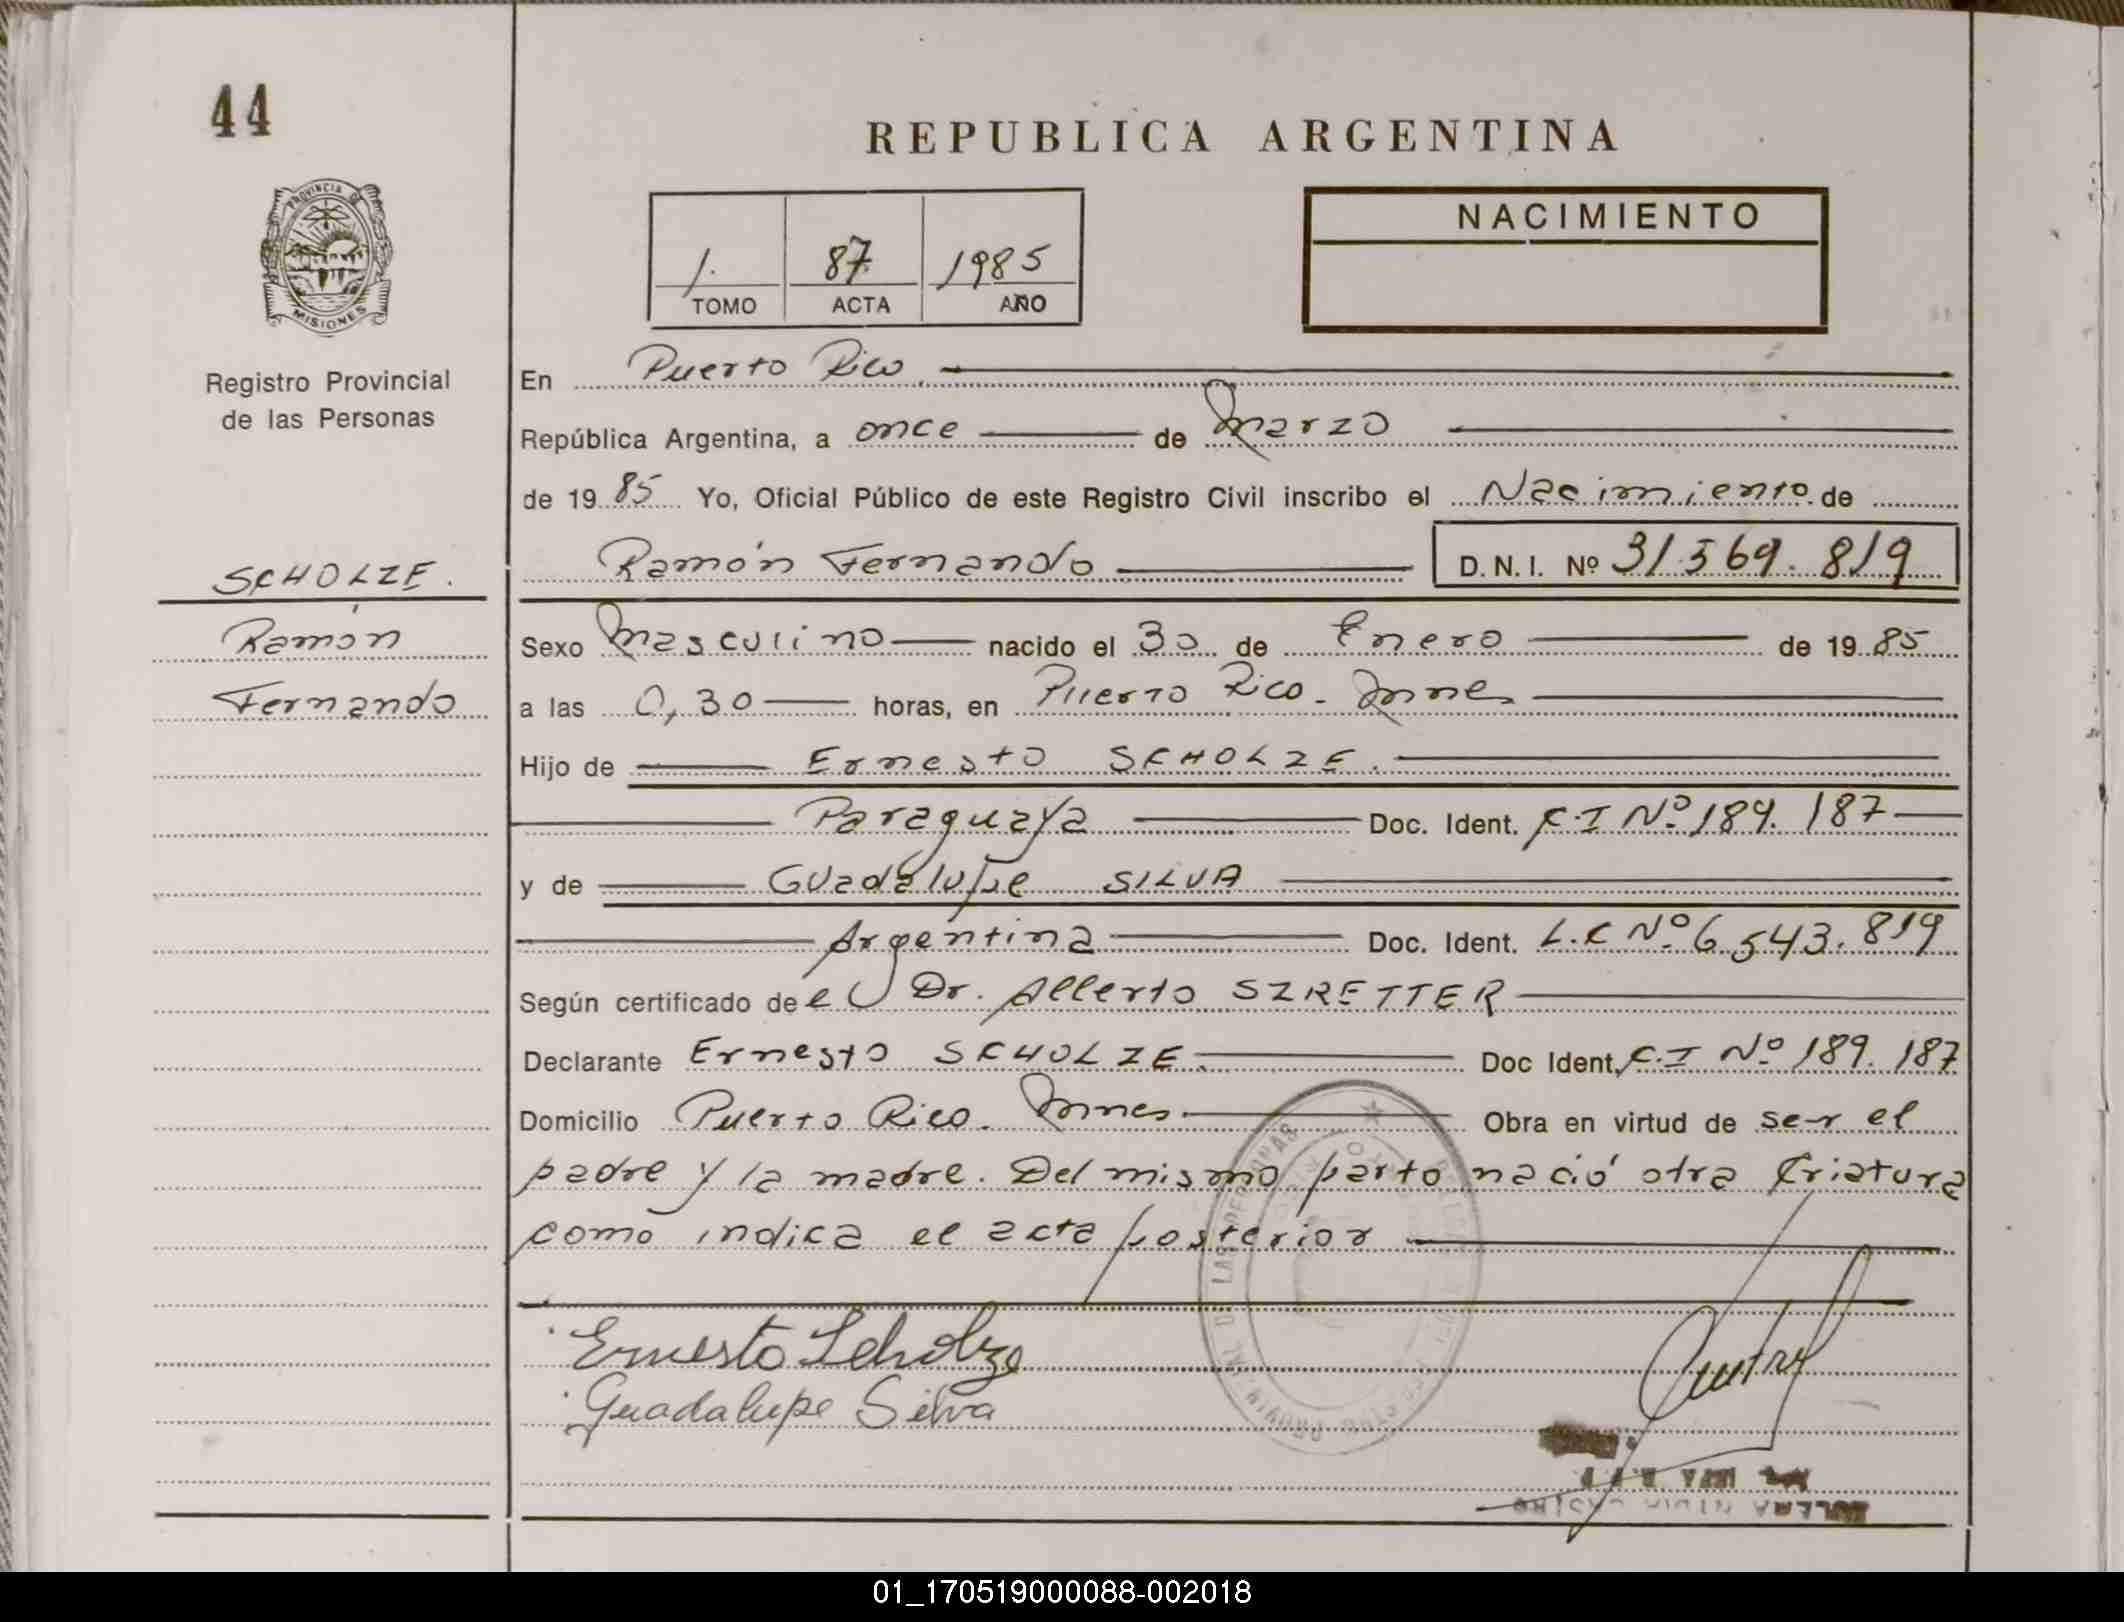 44
REPUBLICA ARGENTINA
PROVINCIA DE
MISIONES
NACIMIENTO
1. 87 1985
TOMO ACTA AÑO
Registro Provincial
de las Personas
En Puerto Rico.
República Argentina, a once de Marzo
de 1985 Yo, Oficial Público de este Registro Civil inscribo el Nacimiento de
SCHOLZE.
Ramón Fernando D.N.I. Nº 31.569.819
Ramón
Sexo Masculino nacido el 30 de Enero de 1985
Fernando
a las 0,30 horas, en Puerto Rico - Mnes
Hijo de Ernesto SCHOLZE.
Paraguaya Doc. Ident. C.I Nº 189.187
y de Guadalupe SILVA
Argentina Doc. Ident. L.C Nº 6.543.819
Según certificado del Dr. Alberto SZRETTER
Declarante Ernesto SCHOLZE. Doc Ident. C.I Nº 189.187
Domicilio Puerto Rico. Mnes. Obra en virtud de ser el
padre y la madre. Del mismo parto nació otra criatura
como indica el acta posterior
Ernesto Scholze
Guadalupe Silva
01_170519000088-002018